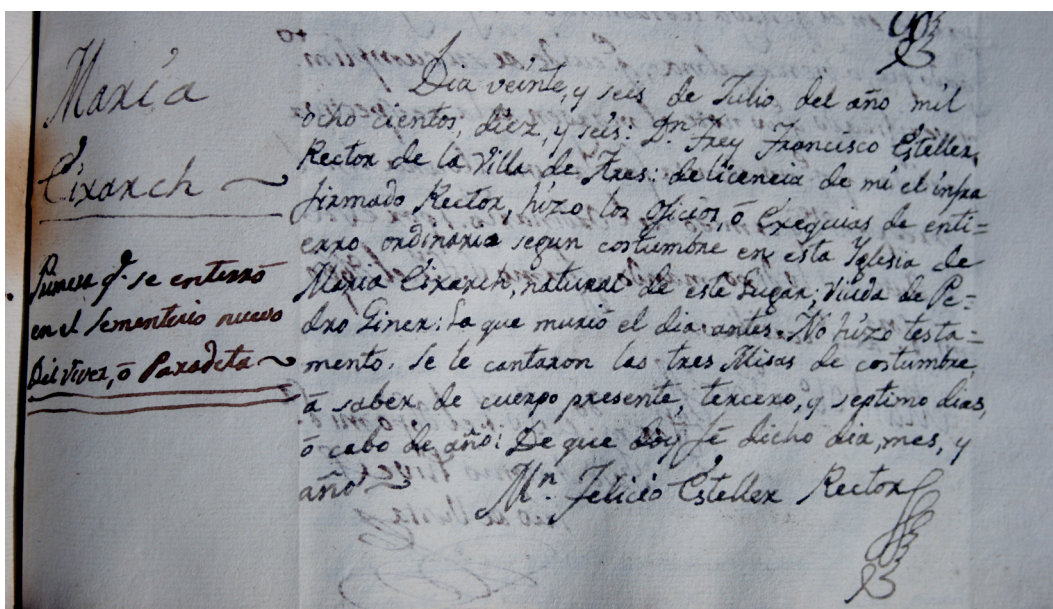 María
Cixarch
Primera q.e se enterró
en el Sementerio nuevo
Del Vivér, ó Paradeta
Dia veinte, y seis de Julio del año mil
ocho cientos, diez, y seis: D.n Frey Francisco Esteller,
Rector de la Villa de Ares: de licencia de mi el infra
firmado Rector, hizo los oficios, ó Exequias de enti=
erro ordinaria segun costumbre en esta Yglesia de
Maria Cixarch, natural de este Lugar; Viuda de Pe=
dro Giner: La que murió el dia antes. No hizo testa=
mento. Se le cantaron las tres Misas de costumbre,
á saber de cuerpo presente, tercero, y septimo dias,
ó cabo de año: De que doy fé dicho dia, mes, y
año
M.n Felicio Esteller Rector